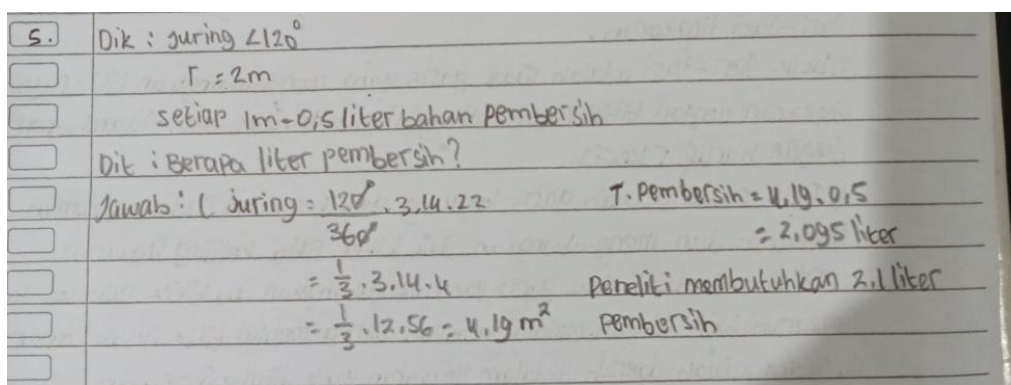 5. Dik : Juring ∠120°
r = 2m
setiap 1m - 0,5 liter bahan Pembersih
Dit : Berapa liter pembersih?
Jawab : L juring = 120°/360° . 3,14 . 22
= 1/3 . 3.14.4
= 1/3 . 12,56 = 4,19 m²
T. Pembersih = 4,19. 0,5
= 2,095 liter
Peneliti membutuhkan 2,1 liter
Pembersih